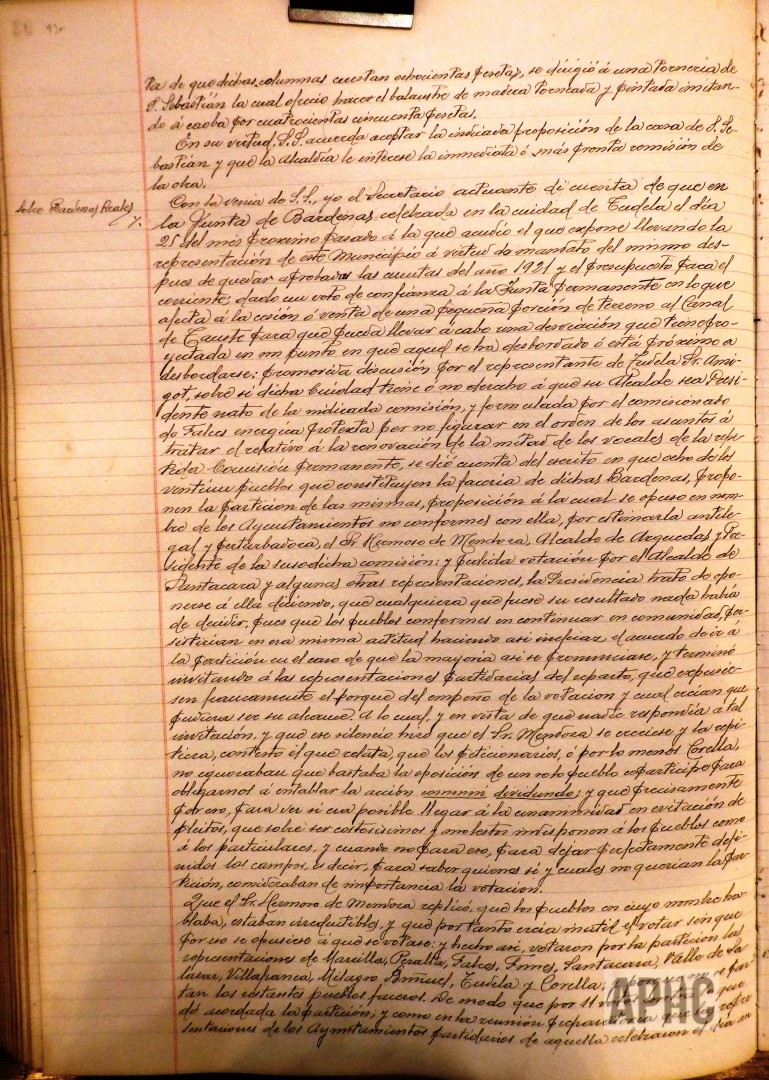 ta de que dichas columnas cuestan ochocientas pesetas, se dirigió á una Tornería de
S. Sebastián la cual ofreció hacer el balaustre de madera torneada y pintada imitan-
do á caoba por cuatrocientas cincuenta pesetas.
En su virtud, S.S. acuerda aceptar la indicada proposición de la casa de S. Se-
bastián y que la Alcaldía le interese la inmediata ó más pronta remisión de
la obra.
Sobre Bardenas Reales
Con la venia de S.S., yo el Secretario actuante di cuenta de que en
la Junta de Bardenas celebrada en la ciudad de Tudela el día
25 del mes próximo pasado á la que acudió el que expone llevando la
representación de este Municipio á virtud de mandato del mismo des-
pues de quedar aprobadas las cuentas del año 1921 y el presupuesto para el
corriente; dado un voto de confianza á la Junta permanente en lo que
afecta á la cesión ó venta de una pequeña porción de terreno al Canal
de Tauste para que pueda llevar á cabo una desviación que tiene pro-
yectada en un punto en que aquel se ha desbordado ó está próximo a
desbordarse; promovida discusión por el representante de Tudela Sr. Ami-
got, sobre si dicha Ciudad tiene ó no derecho á que su Alcalde sea Presi-
dente nato de la indicada comisión, y formulada por el comisionado
de Falces enérgica protesta por no figurar en el orden de los asuntos á
tratar el relativo á la renovación de la mitad de los vocales de la repe-
tida Comisión permanente, se dió cuenta del escrito en que ocho de los
ventiun pueblos que constituyen la facería de dichas Bardenas, propo-
nen la partición de las mismas, proposición á la cual se opuso en nom-
bre de los Ayuntamientos no conformes con ella, por estimarla antile-
gal y perturbadora, el Sr. Hermoso de Mendoza, Alcalde de Arguedas y Pre-
sidente de la susodicha comisión; y pedida votación por el Alcalde de
Santacara y algunas otras representaciones, la Presidencia trató de opo-
nerse á ella diciendo, que cualquiera que fuese su resultado nada había
de decidir, pues que los pueblos conformes en continuar en comunidad, per-
sistirian en esa misma actitud haciendo así ineficaz el acuerdo de ir á
la partición en el caso de que la mayoría así se pronunciase, y terminó
invitando á las representaciones partidarias del reparto, que expusie-
sen francamente el porqué del empeño de la votación y cual creían que
pudiera ser su alcance. A lo cual, y en vista de que nadie respondía á tal
invitación, y que ese silencio hizo que el Sr. Mendoza se creciese y la repi-
tiera, contestó el que relata, que los peticionarios, ó por lo menos Corella,
no ignoraban que bastaba la oposición de un solo pueblo copartícipe para
obligarnos á entablar la acción communi dividundo; y que precisamente
por eso, para ver si era posible llegar á la unanimidad en evitación de
pleitos, que sobre ser costosísimos y molestos indisponen á los pueblos como
á los particulares, y cuando no para eso, para dejar perfectamente defi-
nidos los campos, es decir, para saber quienes sí y cuales no querian la par-
tición, consideraban de importancia la votación.
Que el Sr. Hermoso de Mendoza replicó, que los pueblos en cuyo nombre ha-
blaba, estaban irreductibles, y que por tanto creía inútil el votar sin que
por eso se opusiese á que se votase; y hecho así, votaron por la partición las
representaciones de Marcilla, Peralta, Falces, Funes, Santacara, Valle de Sa-
lazar, Villafranca, Milagro, Buñuel, Tudela y Corella;
tan los restantes pueblos faceros. De modo que por 11 que
dó acordada la partición; y como en la reunión que repre
sentaciones de los Ayuntamientos partidarios de aquella celebraron el
APHC